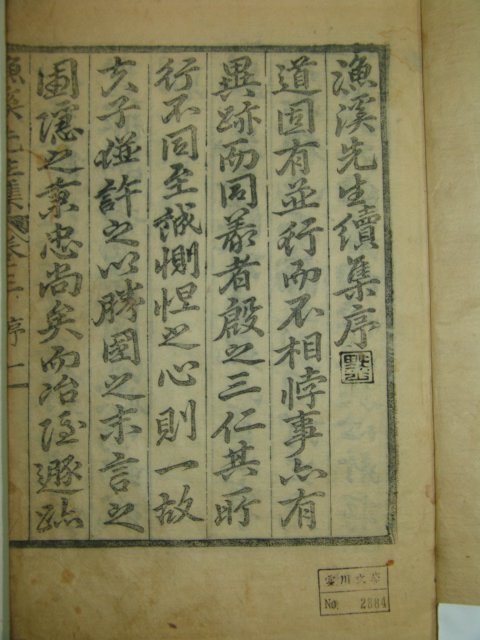 漁溪先生續集序
道固有並行而不相悖事亦有
異跡而同義者殷之三仁其所
行不同至誠惻怛之心則一故
夫子並許之以勝國之末言之
圃隱之秉忠尚矣而冶隱遯跡
漁溪先生集 卷三 序 一
雲川文庫
No. 2884